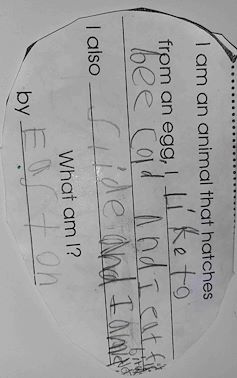 I am an animal that hatches
from an egg, I Like to
bee cold And i eat
I also slide And I am
What am I?
by Easton